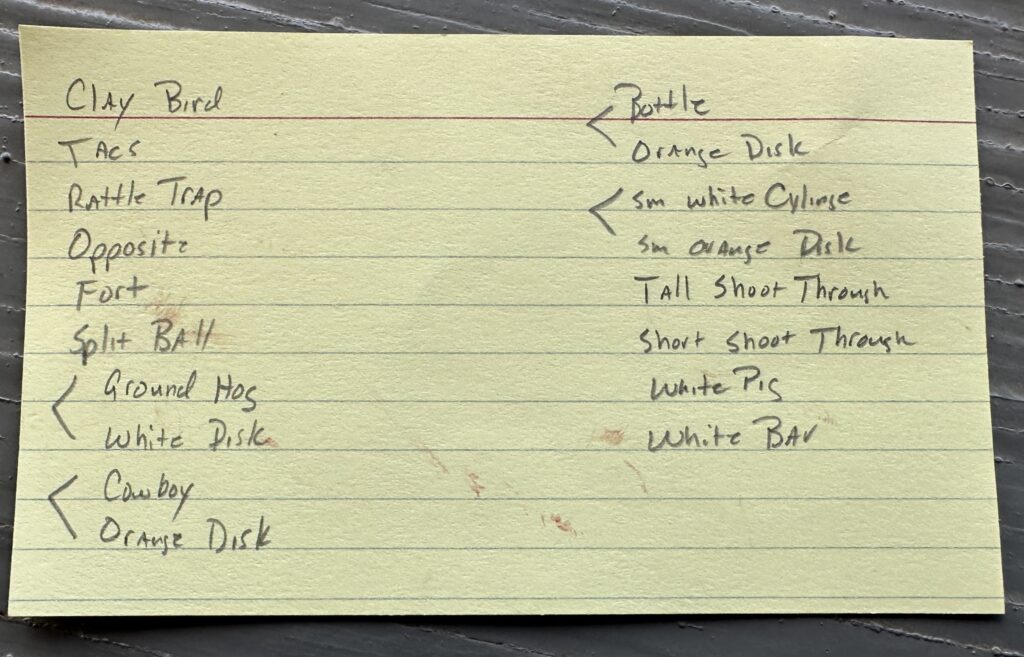 Clay Bird
Tacs
Rattle Trap
Opposite
Fort
Split Ball
Ground Hog
White Disk
Cowboy
Orange Disk
Bottle
Orange Disk
Sm white Cylinge
Sm orange Disk
Tall Shoot Through
Short Shoot Through
White Pig
White Bar